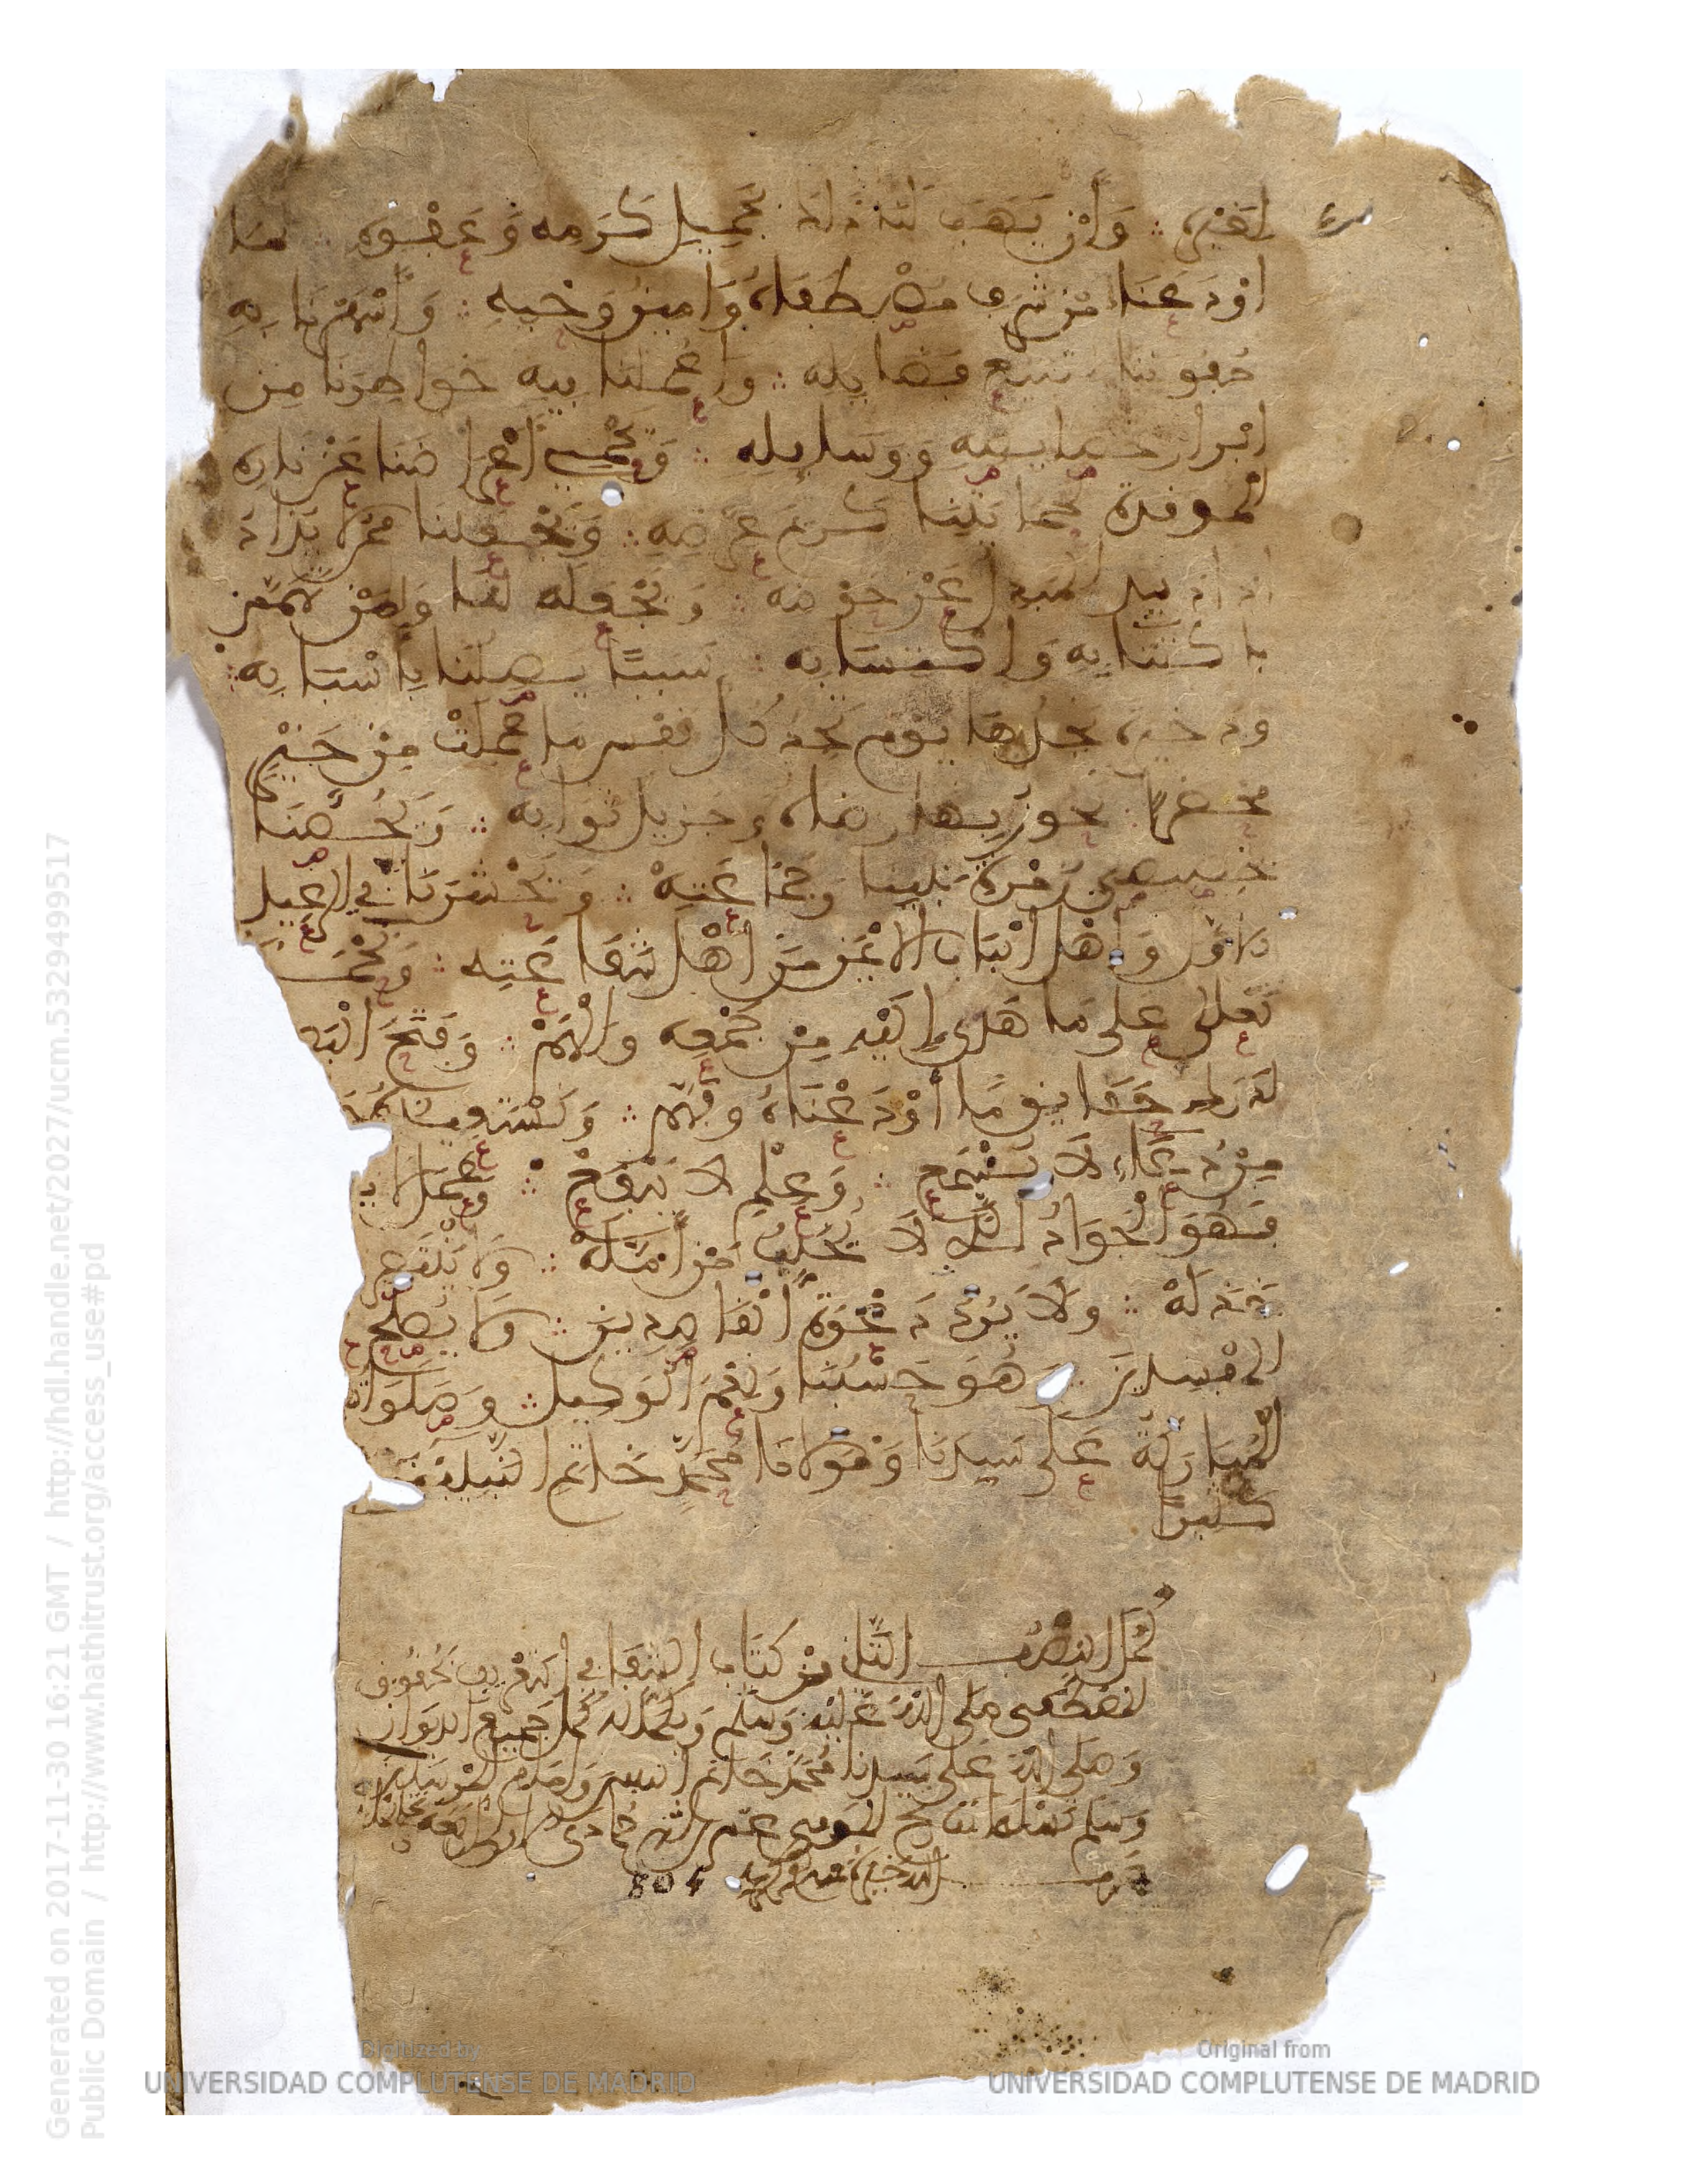 لغيره ∴ وَأَنْ يَهَبَ لنا ذلك بجميل كَرَمه وَعَفْوه لما
اوْدَعناه مِنْ شرف مُصْطَفاه وَامين وَحْيِه ∴ وَأَسْهَرْنَا به
جُفوننا لتتبع فضايله ∴ وَاعْملنا فيه خواطِرنا مِن
ابراز خصايصه وَوسايله ∴ وَيَحْمي أَعْراضنا عَنْ نارِه
الموقدة لحمايتنا كريم عِرْضِه ∴ وَيَجْعلنا ممن لا يذاد
اذا ذيد المبدل عَنْ حَوْضه ∴ وَيَجْعله لنا وَلِمَنْ تهمم
باكتتابه وَاكتسابه ∴ سَببًا يصلنا بِأسْبَابِه ∴
وذخيرة نجدها يوم تجد كُل نفس ما عَمِلَتْ مِنْ خَيْرٍ
محضرا نحوز بها رضاه وجزيل ثوابه ∴ وَيَخُصّنَا
بخصيصى زُمْرة نبينا وَجماعَتِهْ ∴ وَيَحْشُرَنَا في الرعيل
الاوّل وَأَهْل الباب الايْمَن مِنْ أَهْل شَفَاعَتِه ∴ وَنحْمَد
تعلى على مَا هَدى إِلَيْه مِنْ جَمْعِه وَالْهَمْ ∴ وَفَتَحَ الْبَصِ
لدرك حقايق مَا أَوْدَعْنَاهُ وفَهَّم ∴ وَنَسْتَعِيذُ
مِنْ دُعَاءٍ لَا يُسْمَع ∴ وَعِلْمٍ لا يَنْفَعْ ∴ وَعَمَلٍ لا يُ
فَهُوَ الْجَوَادُ الَّذي لَا يُخَيِّبُ مَنْ أَمَّلَهْ ∴ وَلَا يَنْتَصِر
خذلَهْ ∴ ولَا يَرُدُّ دَعْوَةَ الْقَاصِدِينَ ∴ وَلَا يُصْلِح
المفسدين وَهُوَ حَسْبُنَا وَنِعْمَ الْوَكيل ∴ وَصَلَوَاته
الْمُبَارَكَةُ عَلَى سَيدِنَا وَمَوْلَانَا مُحَمَّدٍ خَاتم النَّبيين
كثيرًا
كُمل النصْف الثَّاني مِنْ كِتَاب الشفا في التعْريف بحُقُوق
المصْطَفى صَلى اللهُ عَليْه وَسَلم وَبحمْد الله كَمُل جَميع الديوَان
وَصَلى اللهُ عَلَى سيدنا مُحَمّد خَاتم النبيين وَامَام المرْسَلين
وَسَلم تسليما
804
Generated on 2017-11-30 16:21 GMT / http://hdl.handle.net/2027/ucm.5329499517
Public Domain / http://www.hathitrust.org/access_use#pd
Digitized by
UNIVERSIDAD COMPLUTENSE DE MADRID
Original from
UNIVERSIDAD COMPLUTENSE DE MADRID